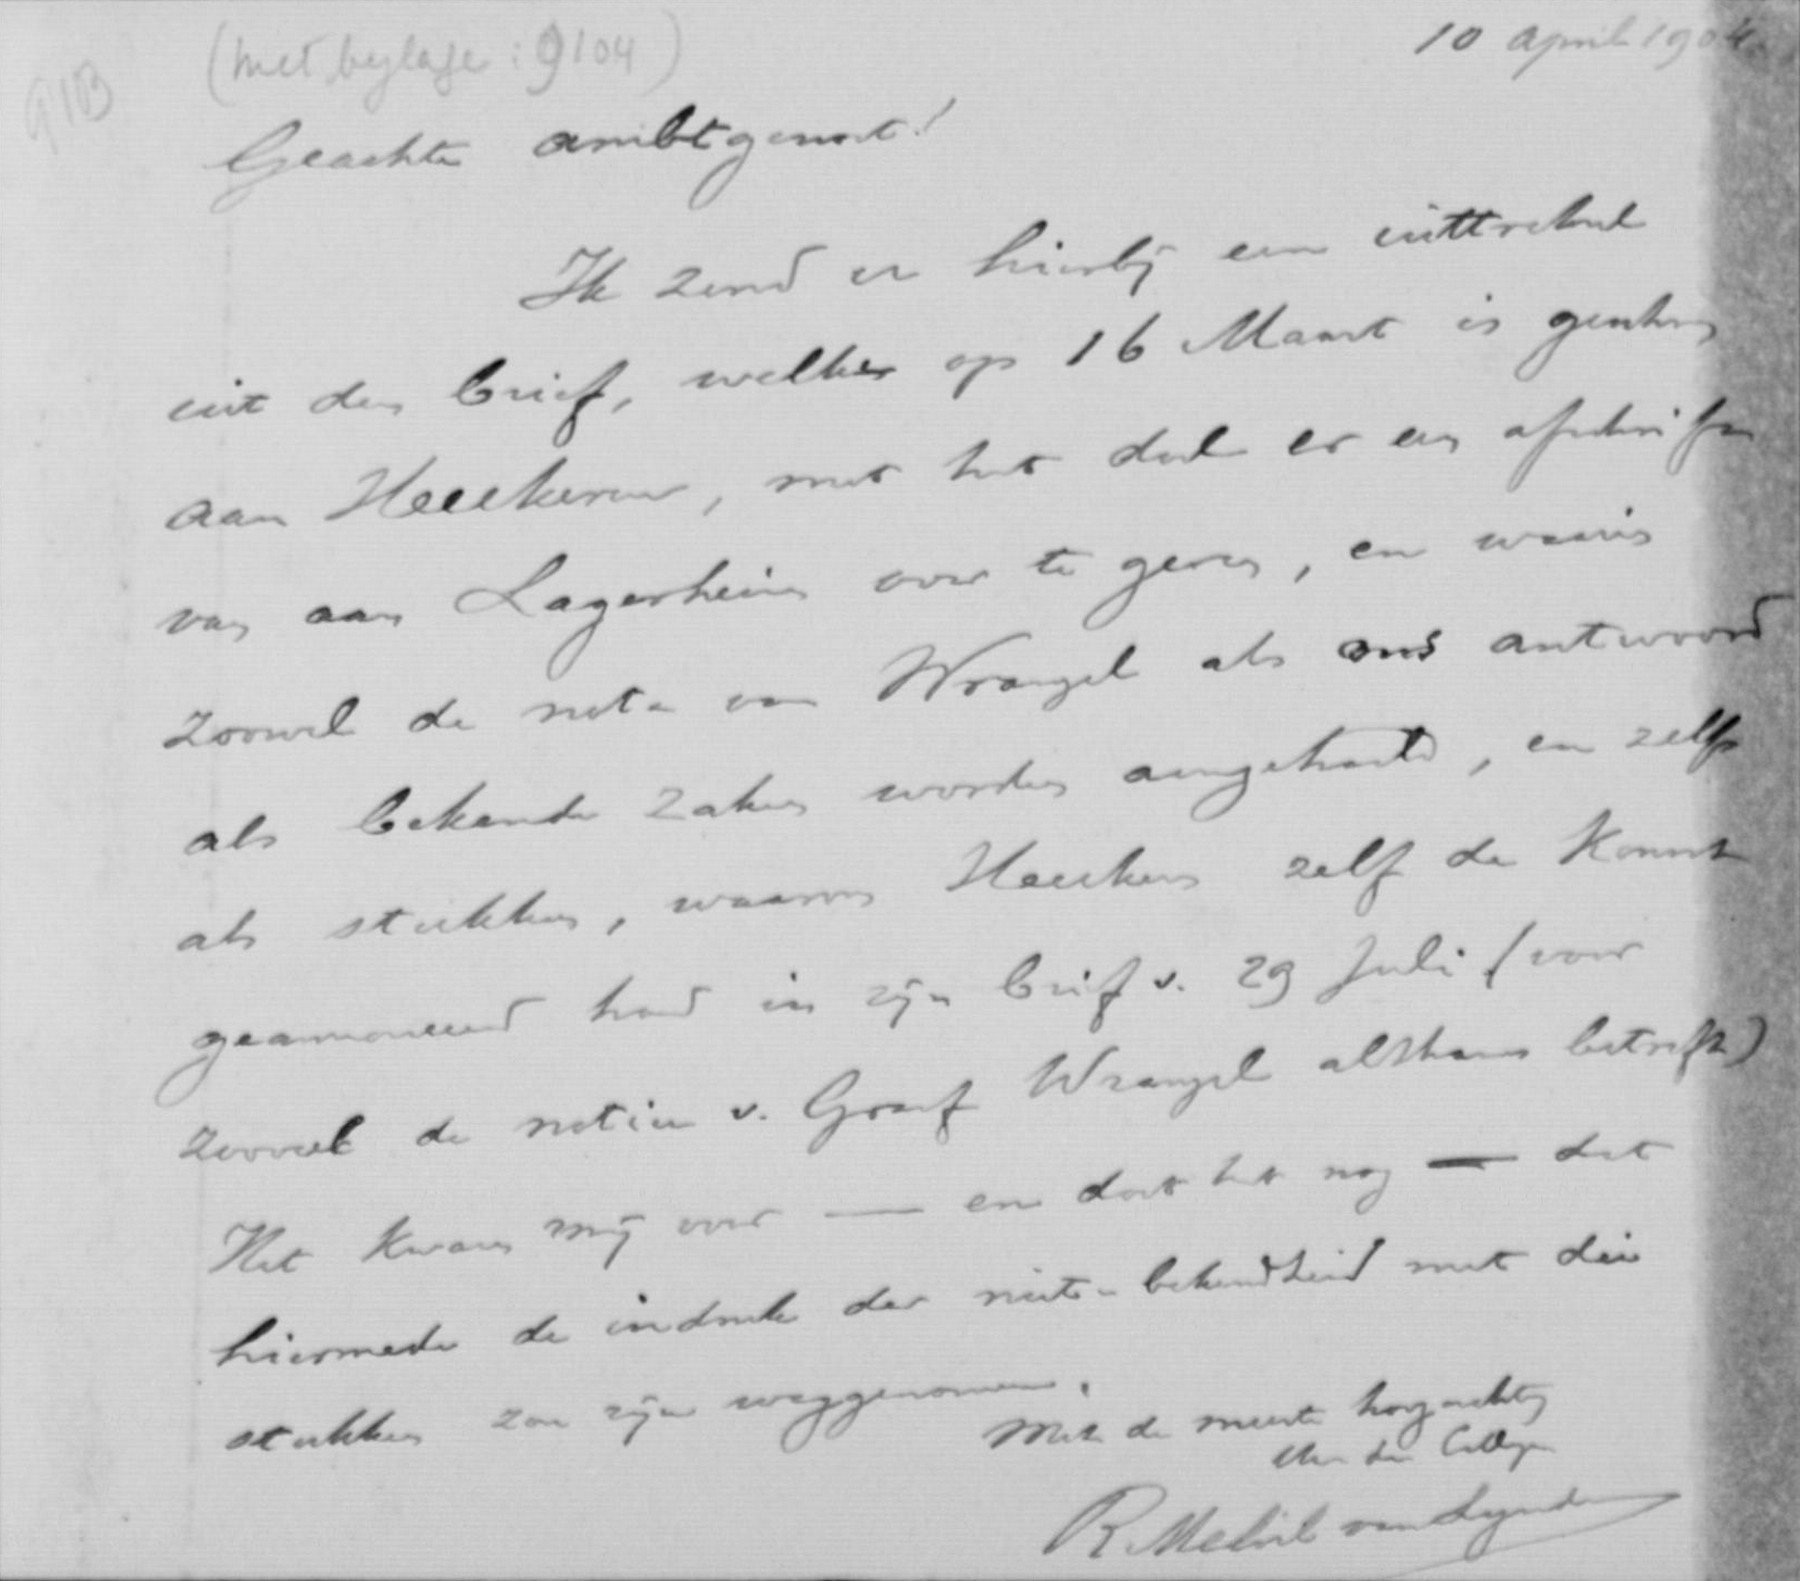 (met bylage: 9104)
10 April 1904
9103
Geachte ambtgenoot!
Ik zend u hierbij een uittreksel
uit den brief, welke op 16 Maart is gezonden
aan Heeckeren, met het doel er een afschrift
van aan Lagerheim over te geven, en waarin
zoowel de nota van Wrangel als ons antwoord
als bekende zaken worden aangehaald, en zelfs
als stukken, waarvan Heeckeren zelf de komst
geannonceerd had in zijn brief v. 29 Juli (voor
zooveel de notie v. Graaf Wrangel althans betreft)
Het kwam mij voor — en doet het nog — dat
hiermede de indruk der niet-bekendheid met die
stukken zou zijn weggenomen.
Met de meeste hoogachting
Uw dw
R. Melvil van Lynden